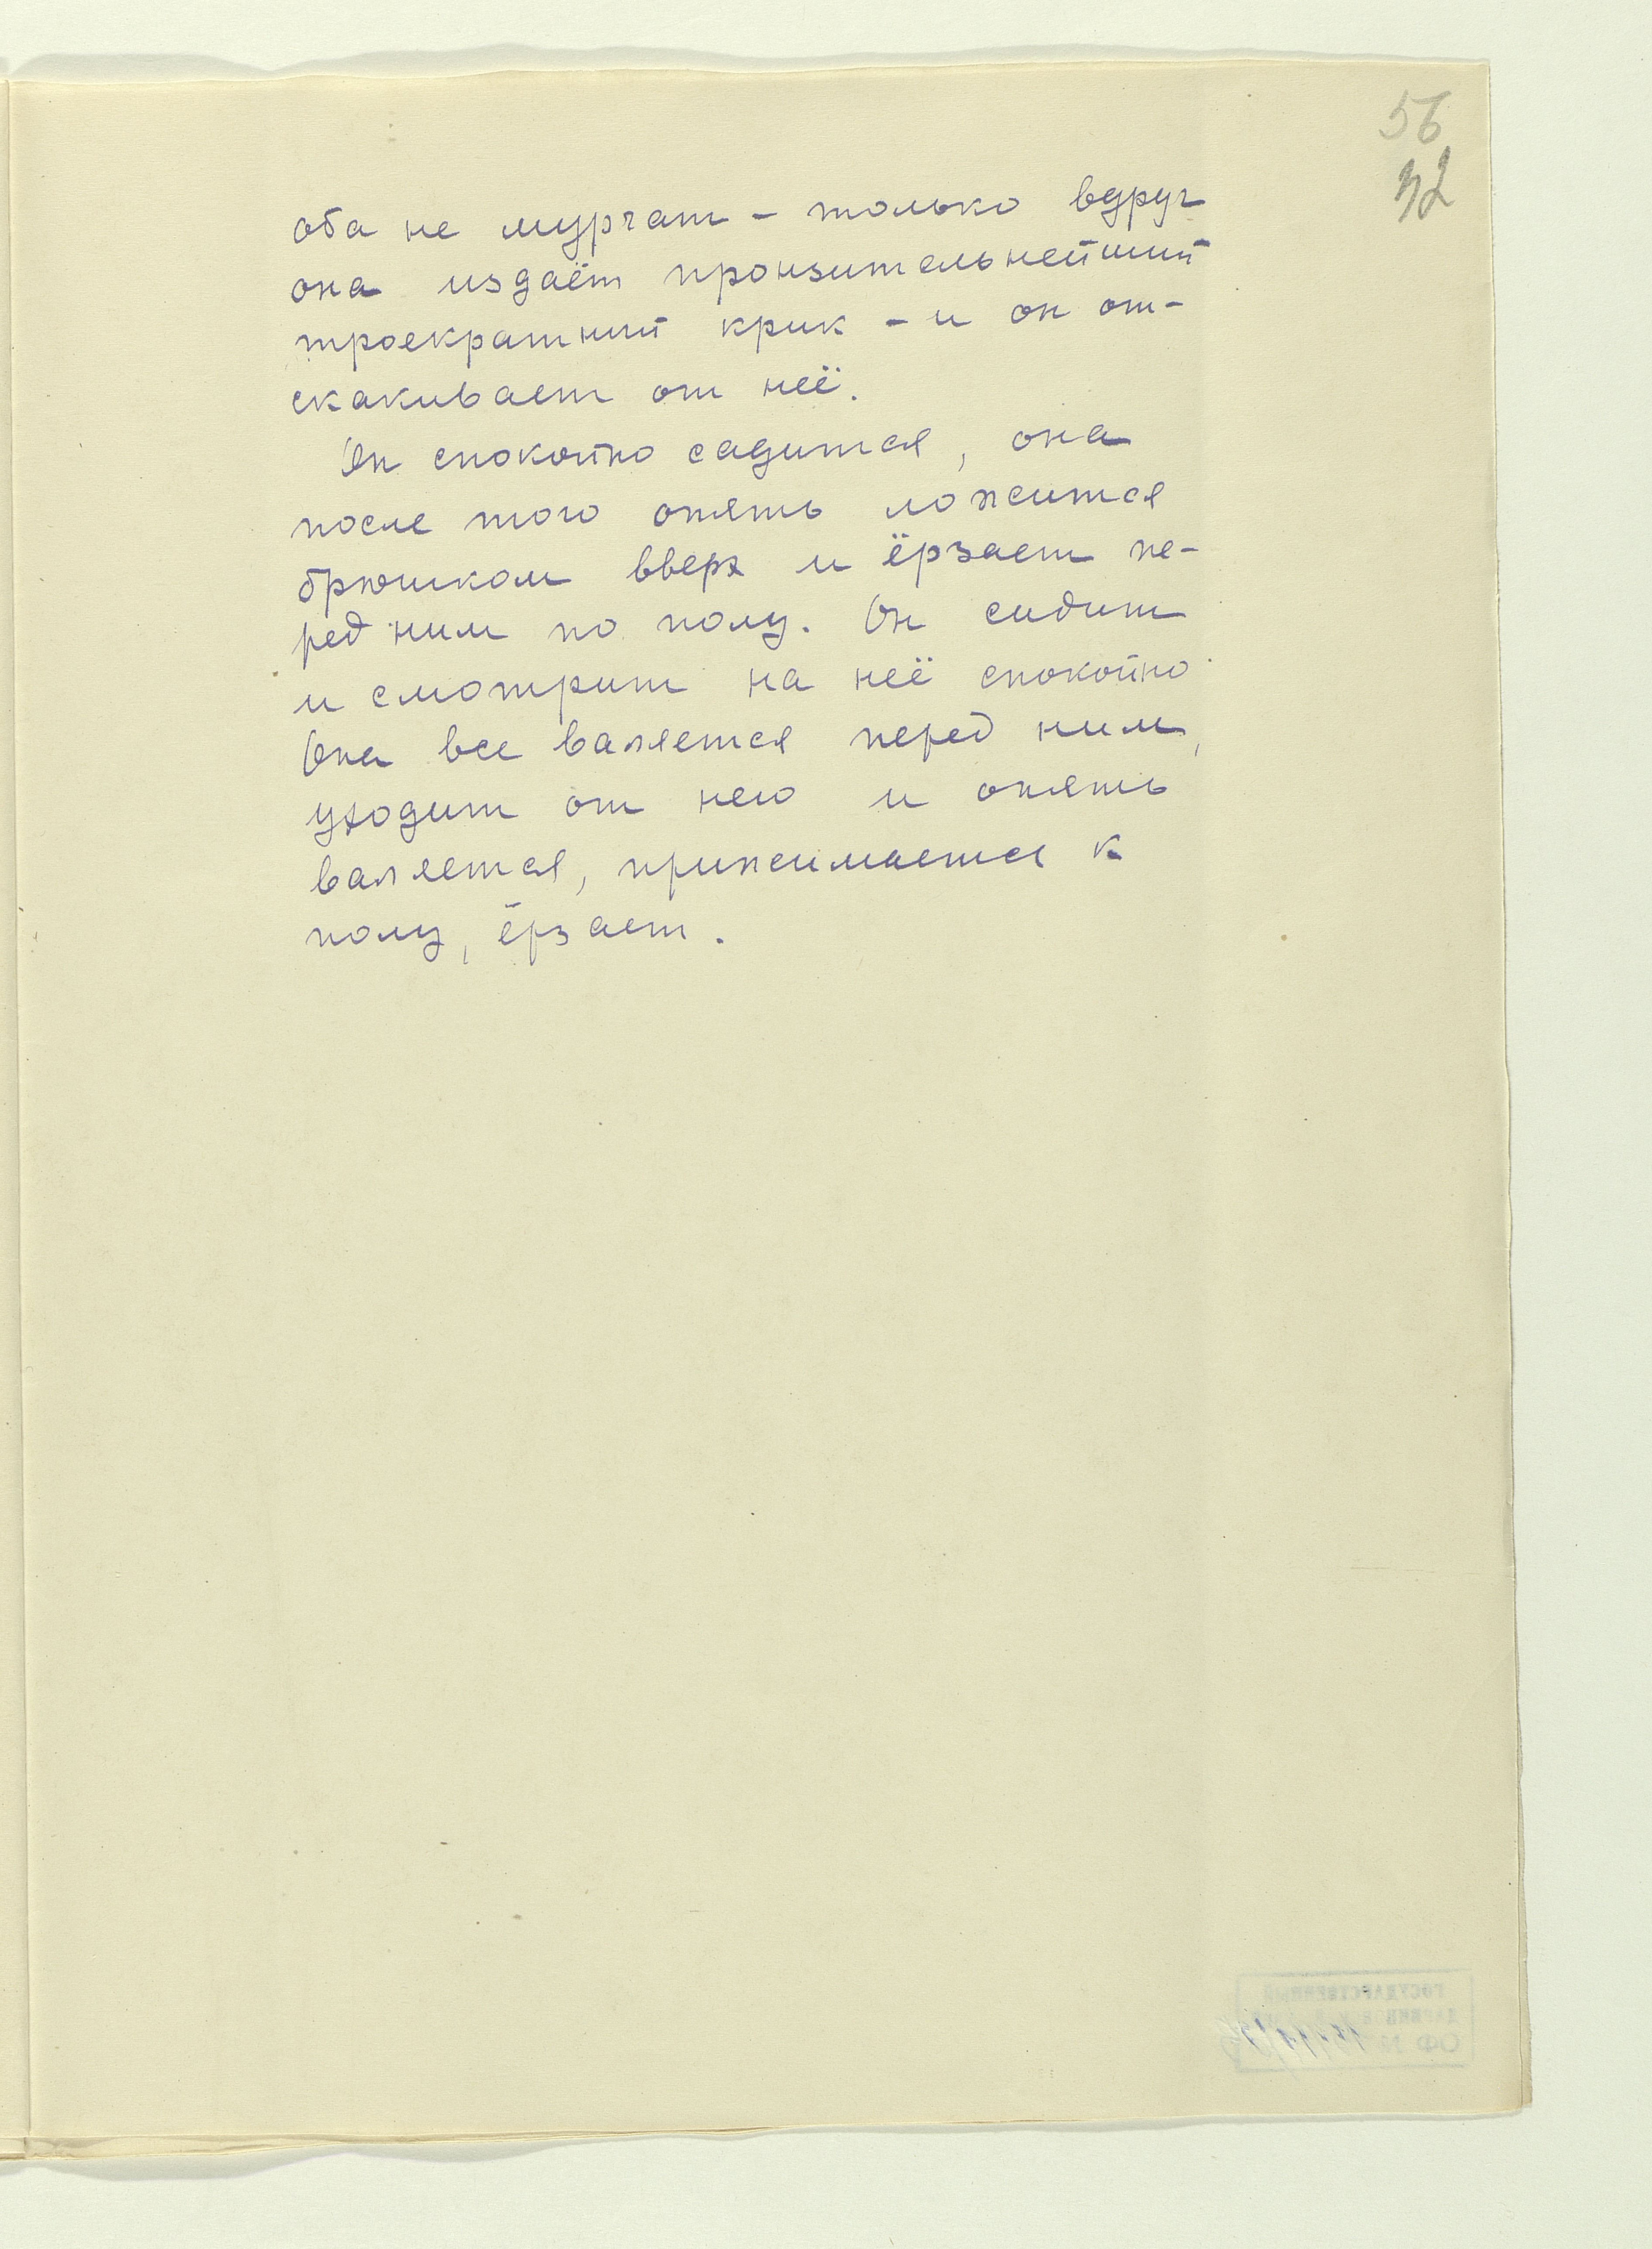 56
32
оба не мурчат - только вдруг
она издаёт пронзительнейший
троекратный крик - и он от-
скакивает от неё.
Он спокойно садится, она
после того опять ложится
брюшком вверх и ёрзает пе-
ред ним по полу. Он сидит
и смотрит на неё спокойно.
Она все валяется перед ним,
уходит от него и опять
валяется, прижимается к
полу, ёрзает.